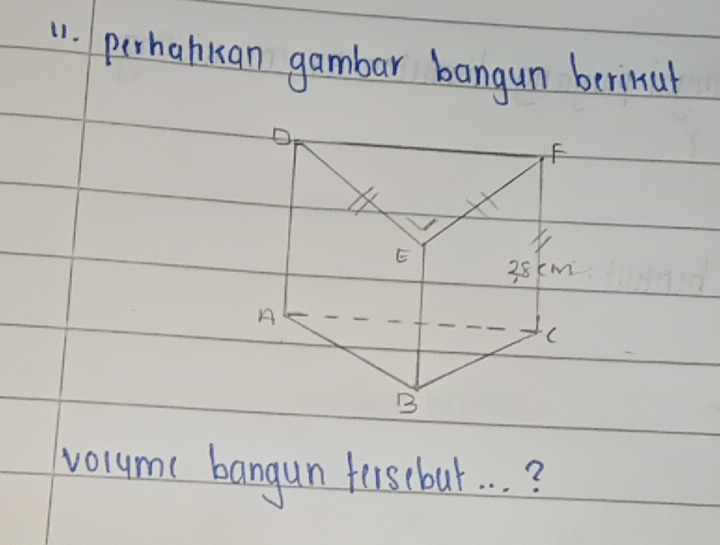 11. perhatikan gambar bangun berikut
D
F
E
28 cm
A
C
B
volume bangun tersebut...?